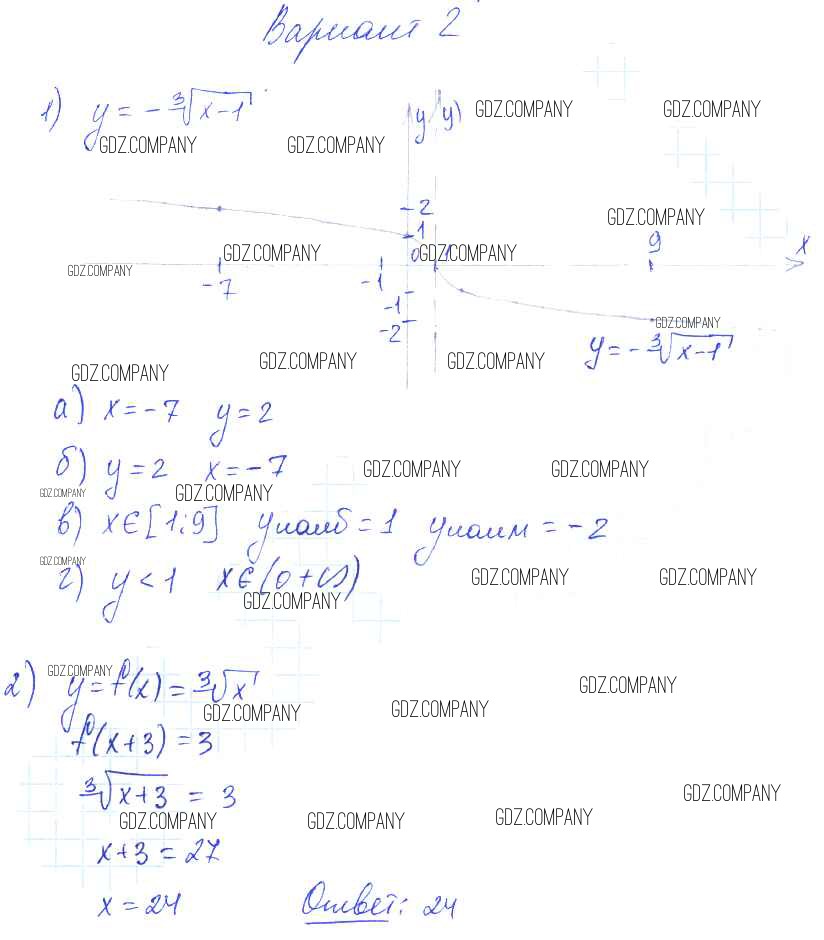 Вариант 2
1) y = -∛(x-1)
y y)
GDZ.COMPANY GDZ.COMPANY
GDZ.COMPANY GDZ.COMPANY
2
GDZ.COMPANY
1
9 x
GDZ.COMPANY 0 GDZ.COMPANY 1
GDZ.COMPANY
-7 -1
-1
-2
GDZ.COMPANY
y = -∛(x-1)
GDZ.COMPANY GDZ.COMPANY GDZ.COMPANY
а) x = -7 y = 2
б) y = 2 x = -7
GDZ.COMPANY GDZ.COMPANY
GDZ.COMPANY GDZ.COMPANY
в) x ∈ [1;9] yнаиб = 1 yнаим = -2
GDZ.COMPANY
г) y < 1 x ∈ (0 +∞)
GDZ.COMPANY GDZ.COMPANY
GDZ.COMPANY
GDZ.COMPANY
2) y = f(x) = ∛x
GDZ.COMPANY
GDZ.COMPANY GDZ.COMPANY
f(x+3) = 3
∛(x+3) = 3
GDZ.COMPANY
GDZ.COMPANY GDZ.COMPANY GDZ.COMPANY
x+3 = 27
x = 24 Ответ: 24